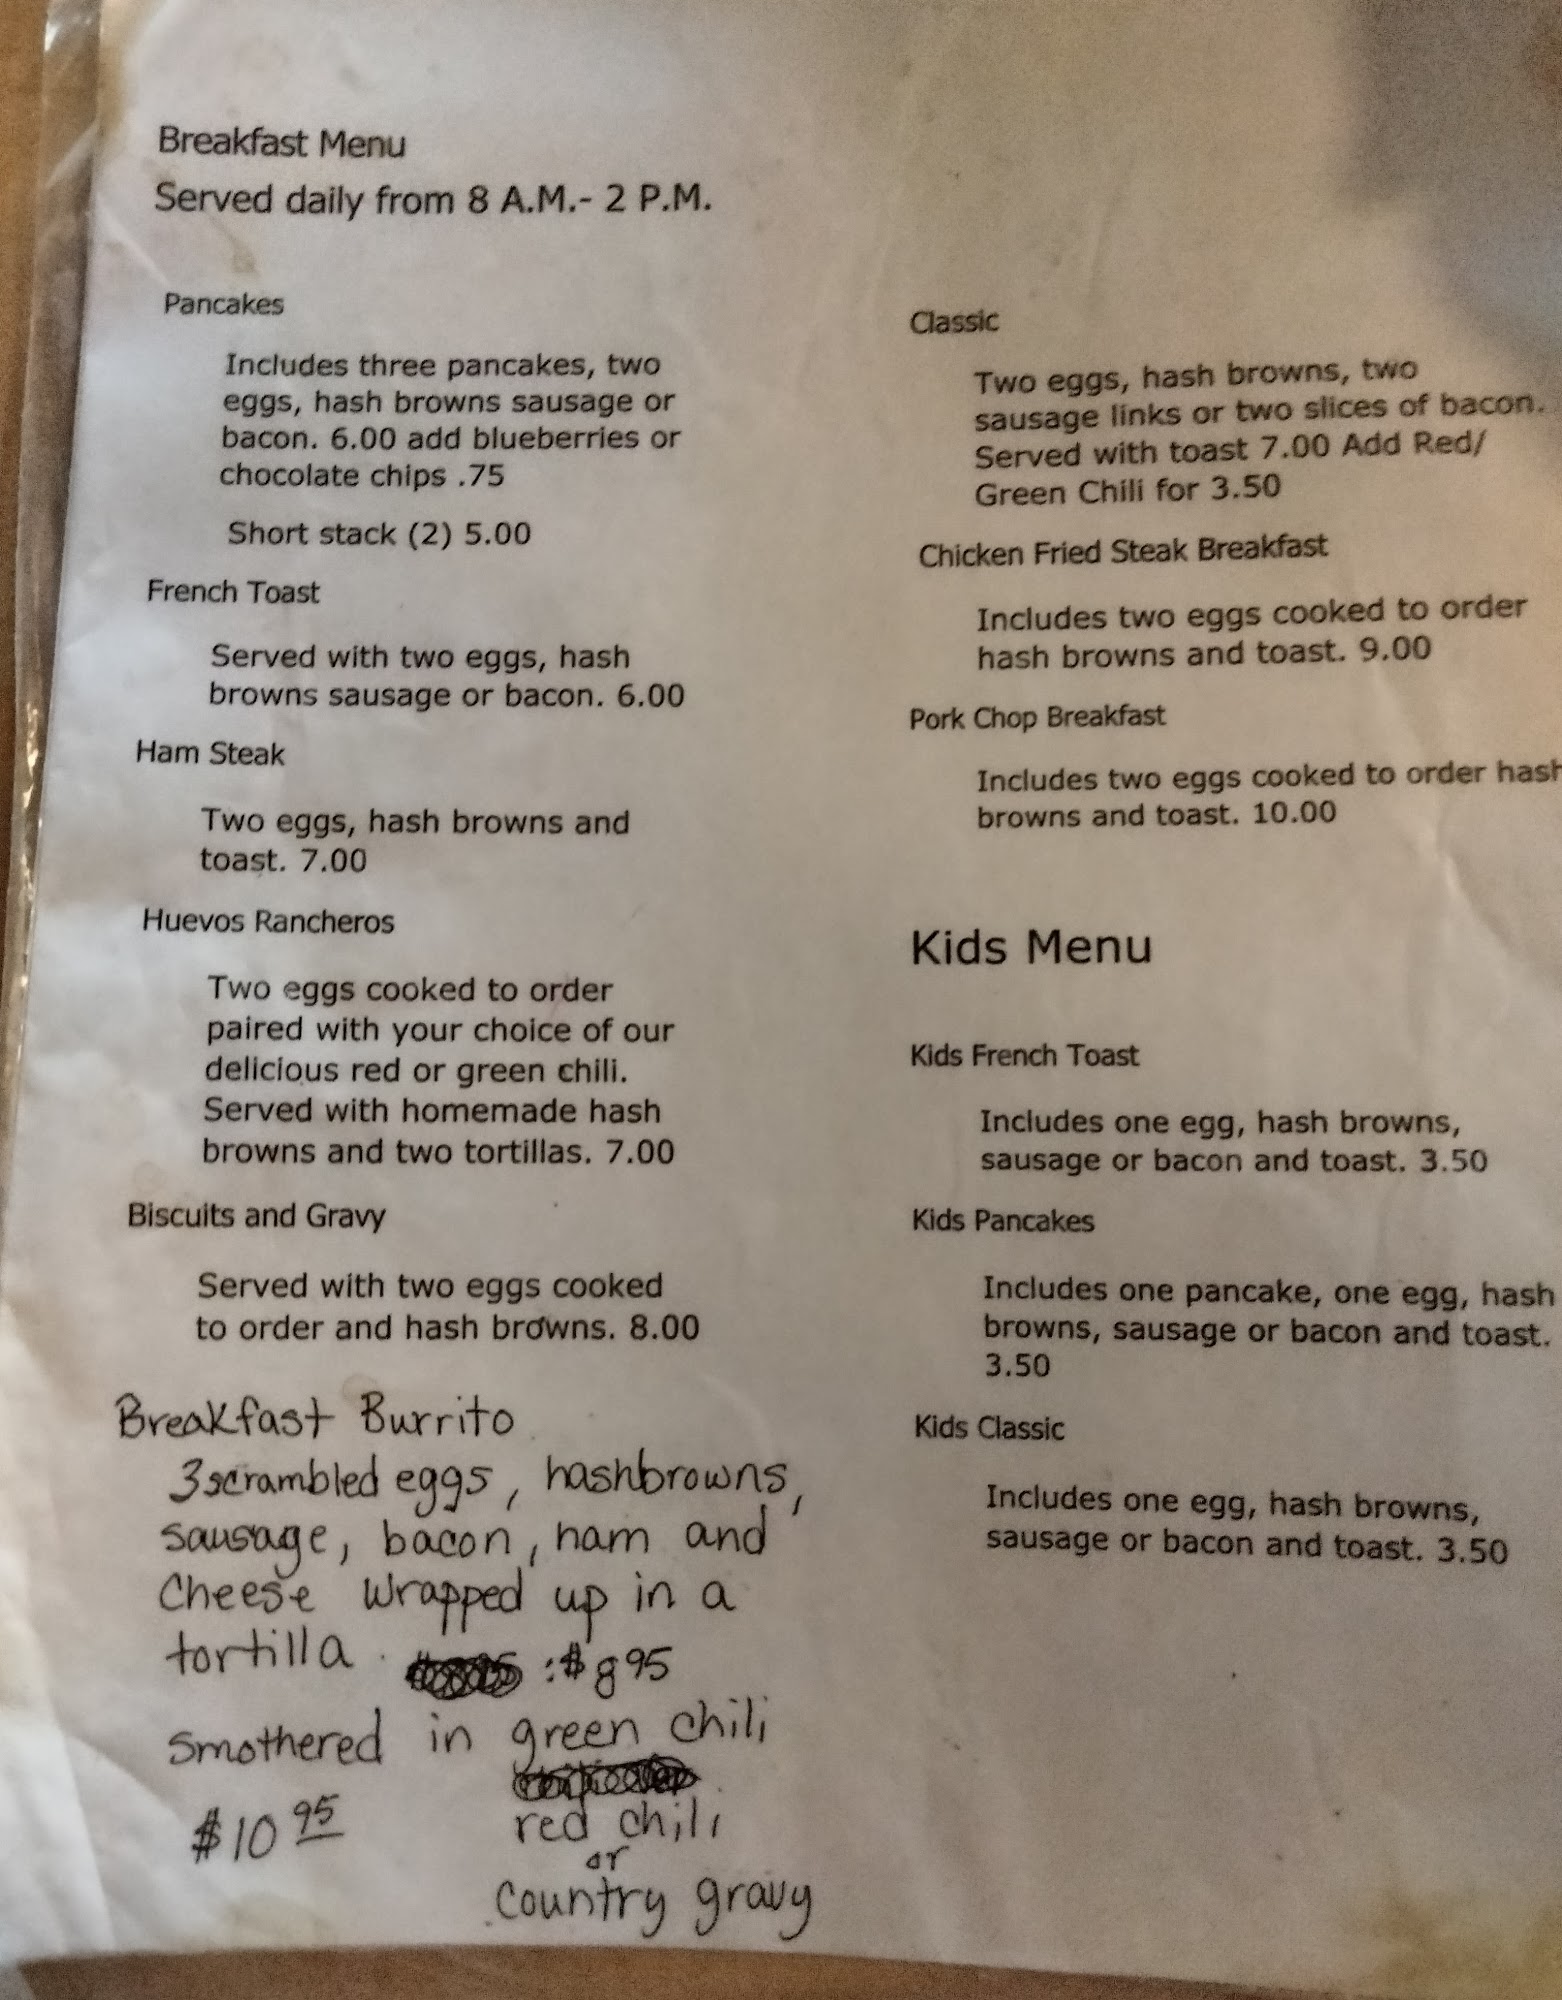 Breakfast Menu
Served daily from 8 A.M.- 2 P.M.
Pancakes
Includes three pancakes, two
eggs, hash browns sausage or
bacon. 6.00 add blueberries or
chocolate chips .75
Short stack (2) 5.00
French Toast
Served with two eggs, hash
browns sausage or bacon. 6.00
Ham Steak
Two eggs, hash browns and
toast. 7.00
Huevos Rancheros
Two eggs cooked to order
paired with your choice of our
delicious red or green chili.
Served with homemade hash
browns and two tortillas. 7.00
Biscuits and Gravy
Served with two eggs cooked
to order and hash browns. 8.00
Breakfast Burrito
3 scrambled eggs, hashbrowns,
sausage, bacon, ham and
Cheese wrapped up in a
tortilla. : $8 95
Smothered in green chili
$10 95 red chili
or
Country gravy
Classic
Two eggs, hash browns, two
sausage links or two slices of bacon.
Served with toast 7.00 Add Red/
Green Chili for 3.50
Chicken Fried Steak Breakfast
Includes two eggs cooked to order
hash browns and toast. 9.00
Pork Chop Breakfast
Includes two eggs cooked to order hash
browns and toast. 10.00
Kids Menu
Kids French Toast
Includes one egg, hash browns,
sausage or bacon and toast. 3.50
Kids Pancakes
Includes one pancake, one egg, hash
browns, sausage or bacon and toast.
3.50
Kids Classic
Includes one egg, hash browns,
sausage or bacon and toast. 3.50